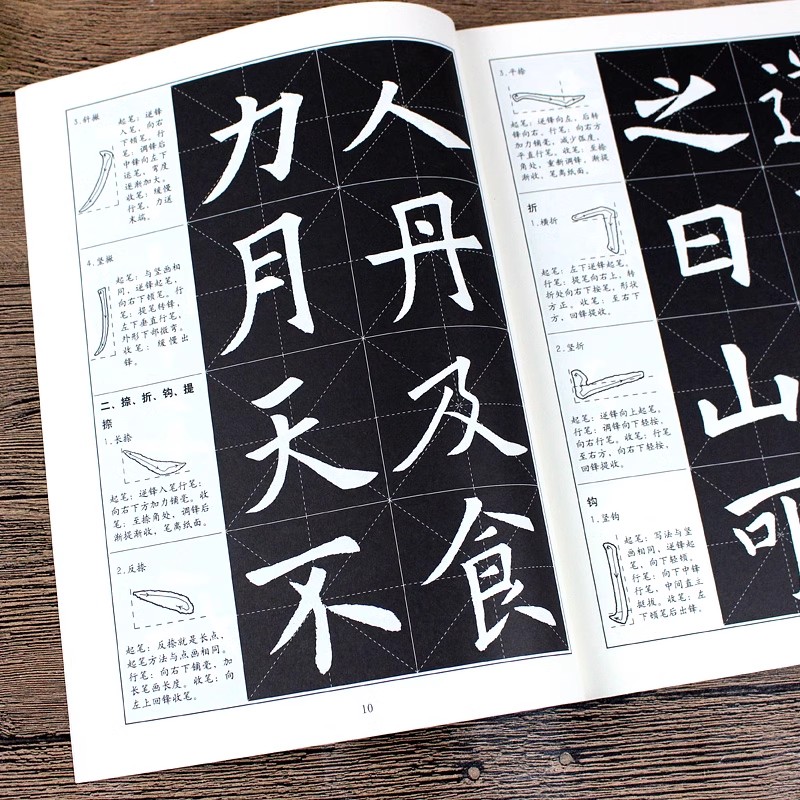 3.斜撇
起笔：逆锋
入笔，向右
下顿笔。行
笔：调锋后
中锋向左下
运笔，弯度
逐渐加大。
收笔：缓慢
行笔，力送
末端。
力
人
4.竖撇
起笔：与竖画相
同，逆锋起笔，
向右下顿笔。行
笔：提笔转锋，
左下垂直行笔，
外形下部微弯。
收笔：缓慢出
锋。
月
丹
二、捺、折、钩、提
捺
1.长捺
起笔：逆锋入笔行笔：
向右下方加力铺毫。收
笔：至捺角处，调锋后
渐提渐收，笔离纸面。
天
及
2.反捺
起笔：反捺就是长点，
起笔方法与点画相同。
行笔：向右下铺毫，加
长笔画长度。收笔：向
左上回锋收笔。
不
食
10
3.平捺
起笔：逆锋向左，后转
锋向右。行笔：向右方
加力铺毫，减少弧度，
平直行笔。收笔：至捺
角处，重新调锋，渐提
渐收，笔离纸面。
之
折
1.横折
起笔：左下逆锋起笔。
行笔：提笔向右上，转
折处向右下按笔，形状
方正。收笔：至右下
方，回锋提收。
日
2.竖折
起笔：逆锋向上起笔。
行笔：调锋向下轻按，
向右行笔。收笔：行笔
至右方，向右下轻按，
回锋提收。
山
钩
1.竖钩
起笔：写法与竖
画相同，逆锋起
笔，向下轻顿。
行笔：向下中锋
行笔，中间直立
挺拔。收笔：左
下顿笔后出锋。
可